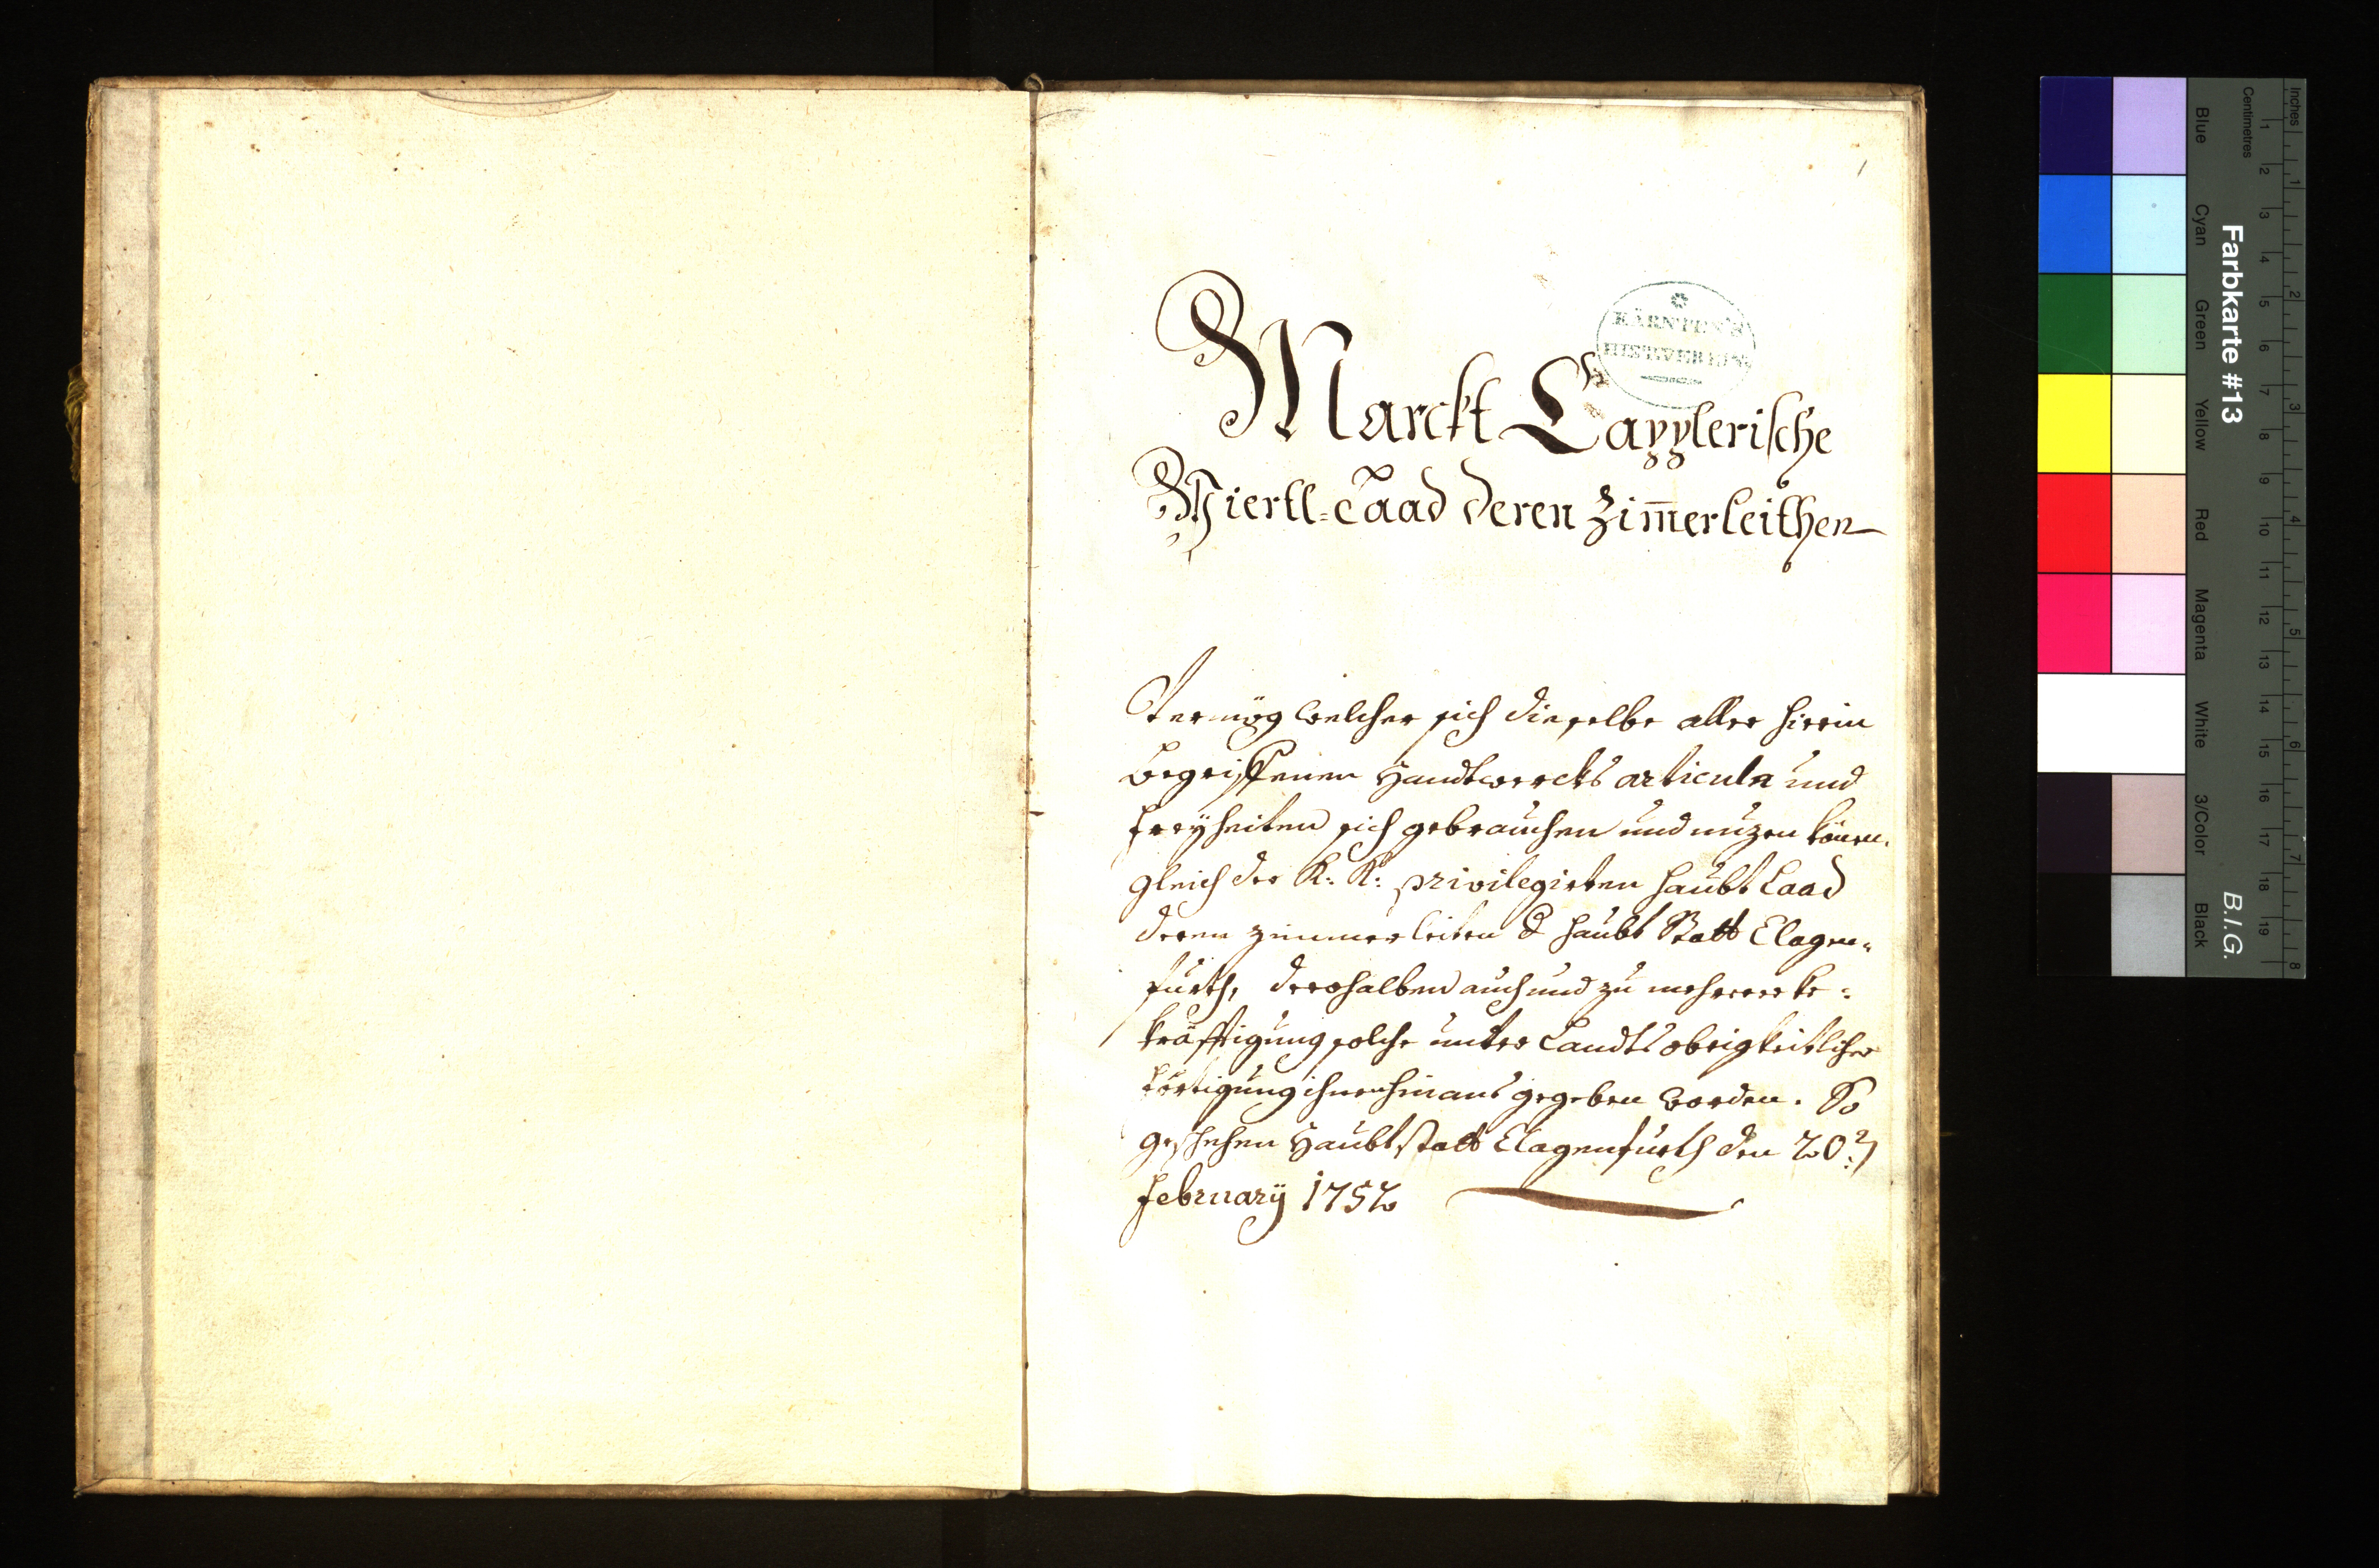 1
KÄRNTEN'S
HIST. VEREIN
Marckt Capplerische
Viertl-Laad deren Zim̅erleithen
Vermög welcher sich dieselbe aller hierin
begriffenen Handtwerckhs articuln und
Freÿheiten sich gebrauchen und nuzen könen.
gleich der K: K: privilegirten haubt Laad
deren zimmerleiten d haubt Statt Clagen=
furth, derohalben auch und zu mehrerer be=
kräfftigung solche unter Landts obrigkeitlicher
förtigung ihnen hinaus gegeben worden. So
geschehen Haubtstatt Clagenfurth den 20:
February 1752
Farbkarte #13
B.I.G.
Inches 1 2 3 4 5 6 7 8
Centimetres 1 2 3 4 5 6 7 8 9 10 11 12 13 14 15 16 17 18 19
Blue Cyan Green Yellow Red Magenta White 3/Color Black